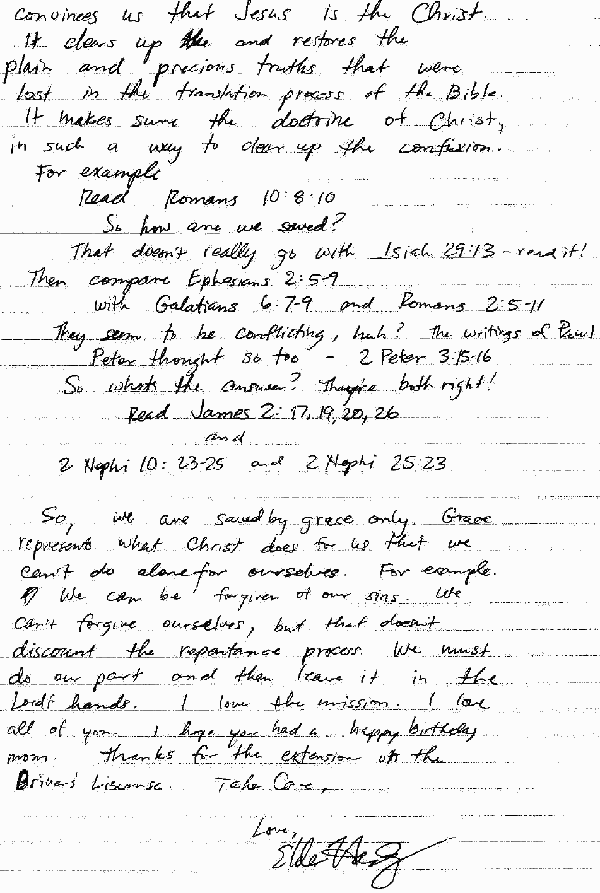 convinces us that Jesus is the Christ.
It clears up the and restores the
plain and precious truths that were
lost in the translation process of the Bible.
It makes sure the doctrine of Christ,
in such a way to clear up the confusion.
For example
Read Romans 10:8-10
So how are we saved?
That doesn't really go with Isiah 29:13 - read it!
Then compare Ephesians 2:5-9
with Galatians 6:7-9 and Romans 2:5-11
They seem to be conflicting, huh? The writings of Paul
Peter thought so too - 2 Peter 3:15-16
So whats the answer? They're both right!
Read James 2:17,19,20,26
and
2 Nephi 10:23-25 and 2 Nephi 25:23
So, we are saved by grace only. Grace
represents what Christ does for us that we
can't do alone for ourselves. For example.
We can be forgiven of our sins. We
can't forgive ourselves, but that doesn't
discount the repantance process. We must
do our part and then leave it in the
Lord's hands. I love the mission. I love
all of you. I hope you had a happy birthday
mom. Thanks for the extension on the
Drivers' Liscense. Take Care,
Love,
Elder